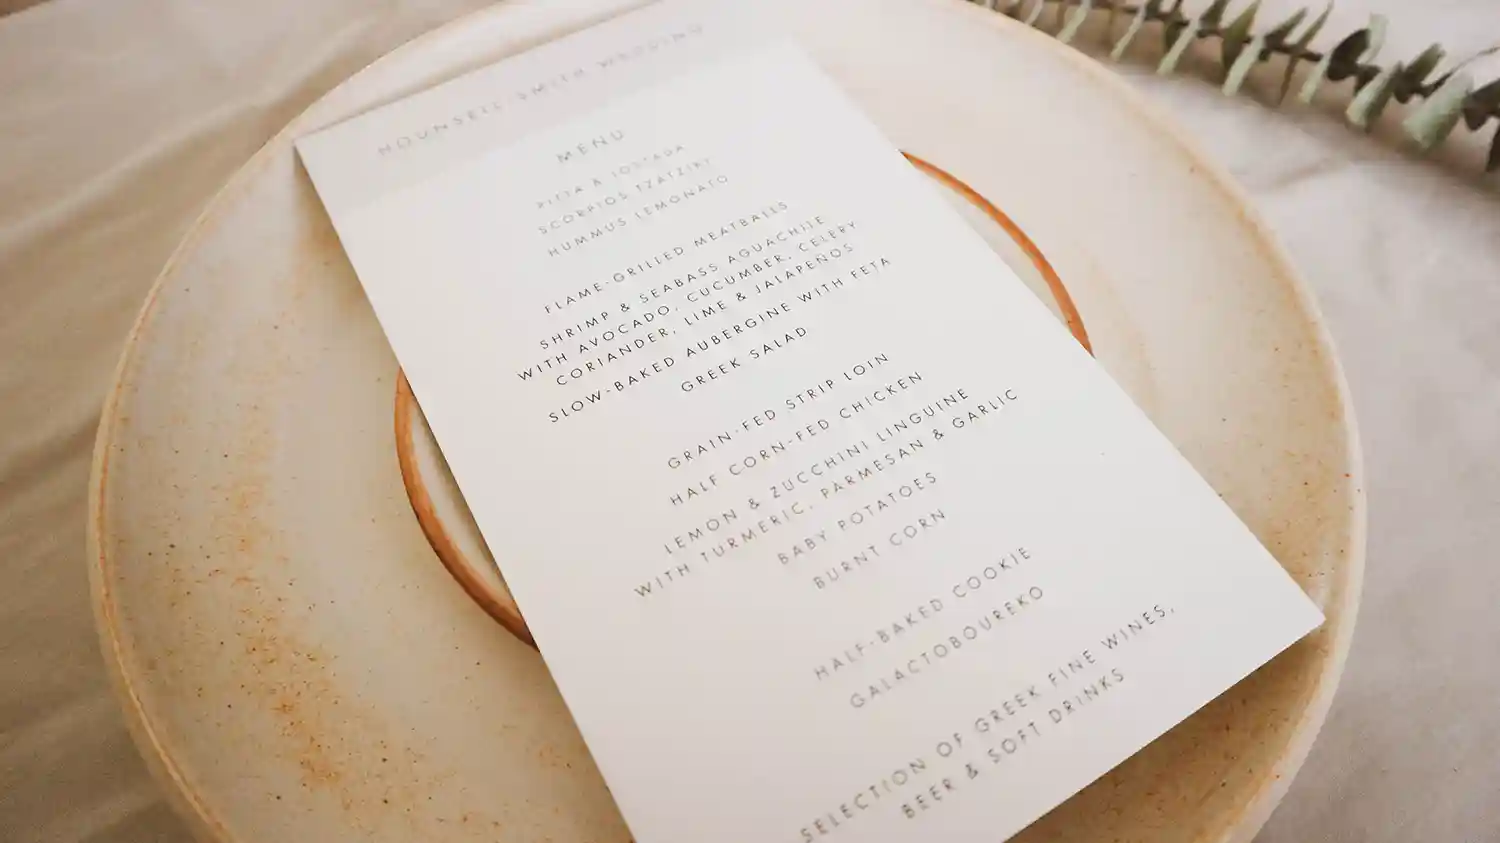 HOUNSELL-SMITH WEDDING
MENU
PITTA & TOSTADA
SCORPIOS TZATZIKI
HUMMUS LEMONATO
FLAME-GRILLED MEATBALLS
SHRIMP & SEABASS AGUACHILE
WITH AVOCADO, CUCUMBER, CELERY
CORIANDER, LIME & JALAPEÑOS
SLOW-BAKED AUBERGINE WITH FETA
GREEK SALAD
GRAIN-FED STRIP LOIN
HALF CORN-FED CHICKEN
LEMON & ZUCCHINI LINGUINE
WITH TURMERIC, PARMESAN & GARLIC
BABY POTATOES
BURNT CORN
HALF-BAKED COOKIE
GALACTOBOUREKO
SELECTION OF GREEK FINE WINES,
BEER & SOFT DRINKS